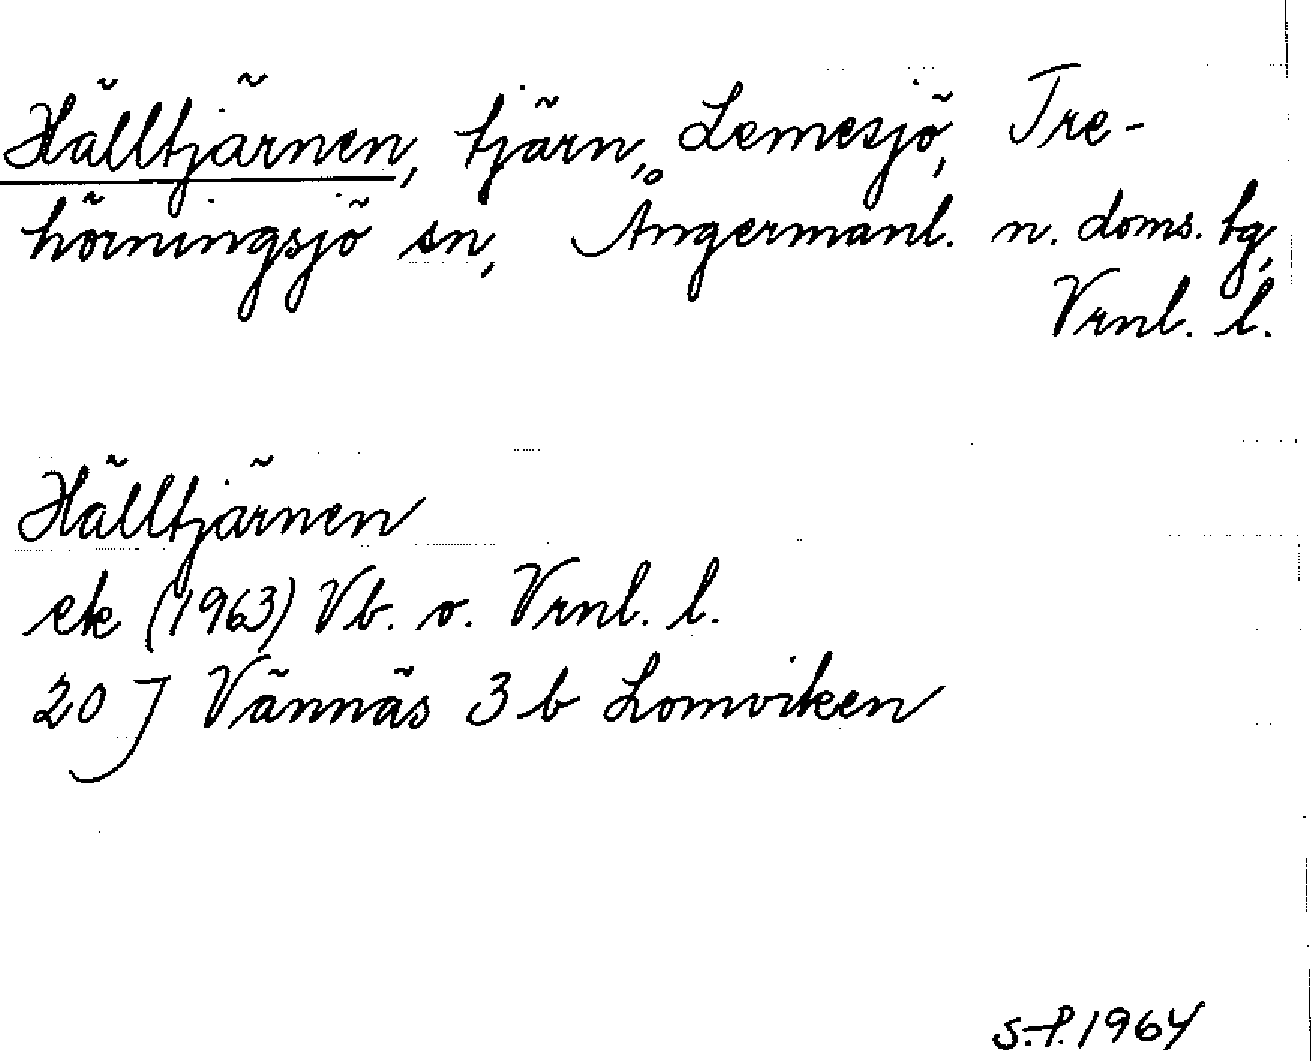 Hälltjärnen, tjärn, Lemesjö, Tre-
hörningsjö sn, Ångermanl. n. doms. tg,
Vrnl. l.
Hälltjärnen
ek (1963) Vb. o. Vrnl. l.
20 J Vännäs 3 b Lomviken
S.-P. 1964